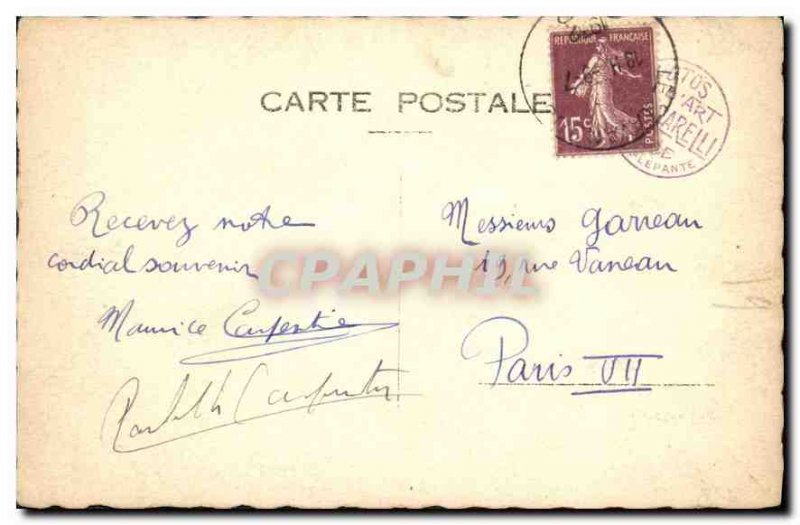 CARTE POSTALE
REPUBLIQUE FRANÇAISE
15c
POSTES
TOS
D'ART
ARELLI
LEPANTE
Recevez notre
cordial souvenir
Maurice Carpentier
Carpentier
Messieurs Garreau
19, rue Vaneau
Paris VII
CPAPHIL